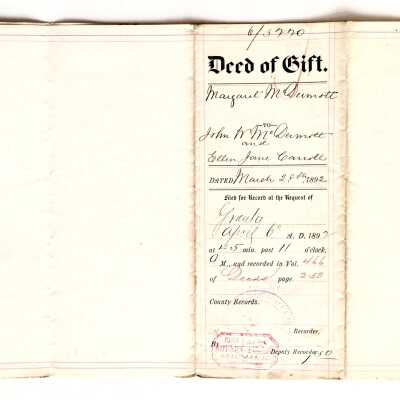 6/5220
Deed of Gift.
Margaret McDermott
TO
John W McDermott
and
Ellen Jane Carroll
DATED March 28th, 1892
Filed for Record at the Request of
Grantee
April 6 A. D. 1892
at 5 min. past 11 o'clock,
M., and recorded in Vol. 466
of Deeds page 250
County Records.
Recorder,
By
Deputy Recorder